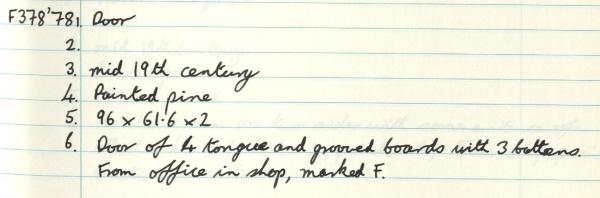 F378'78 1. Door
2.
3. mid 19th century
4. Painted pine
5. 96 x 61.6 x 2
6. Door of 4 tongue and grooved boards with 3 battens.
From office in shop, marked F.